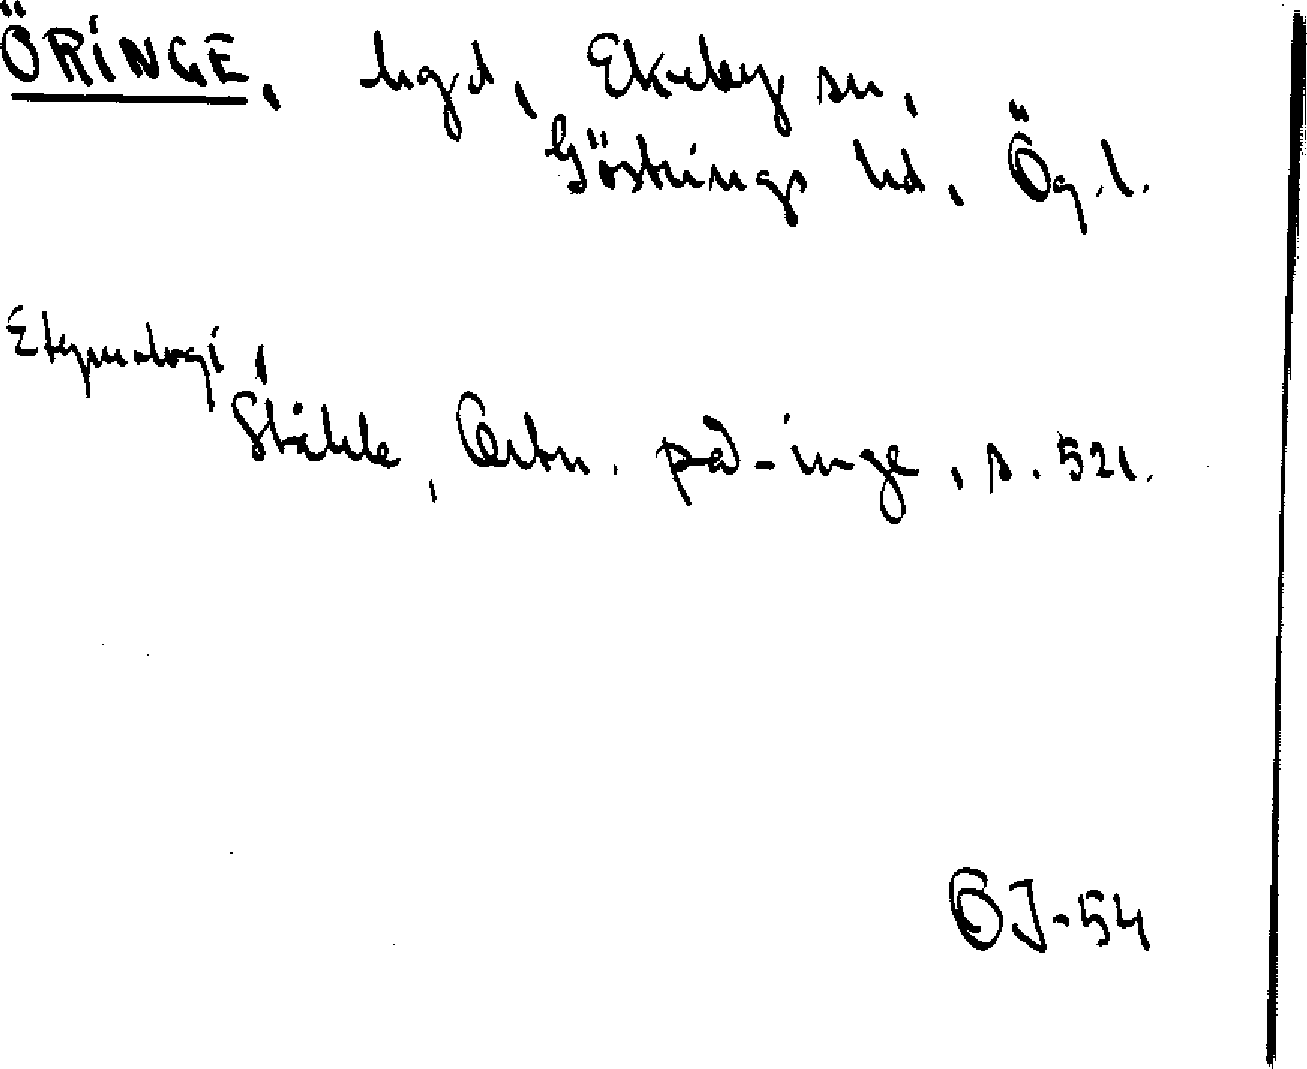 ÖRINGE, hgd, Ekeby sn,
Göstrings hd, Ög. l.
Etymologi,
Ståhle, Ortn. på -inge, s. 521.
OJ-54